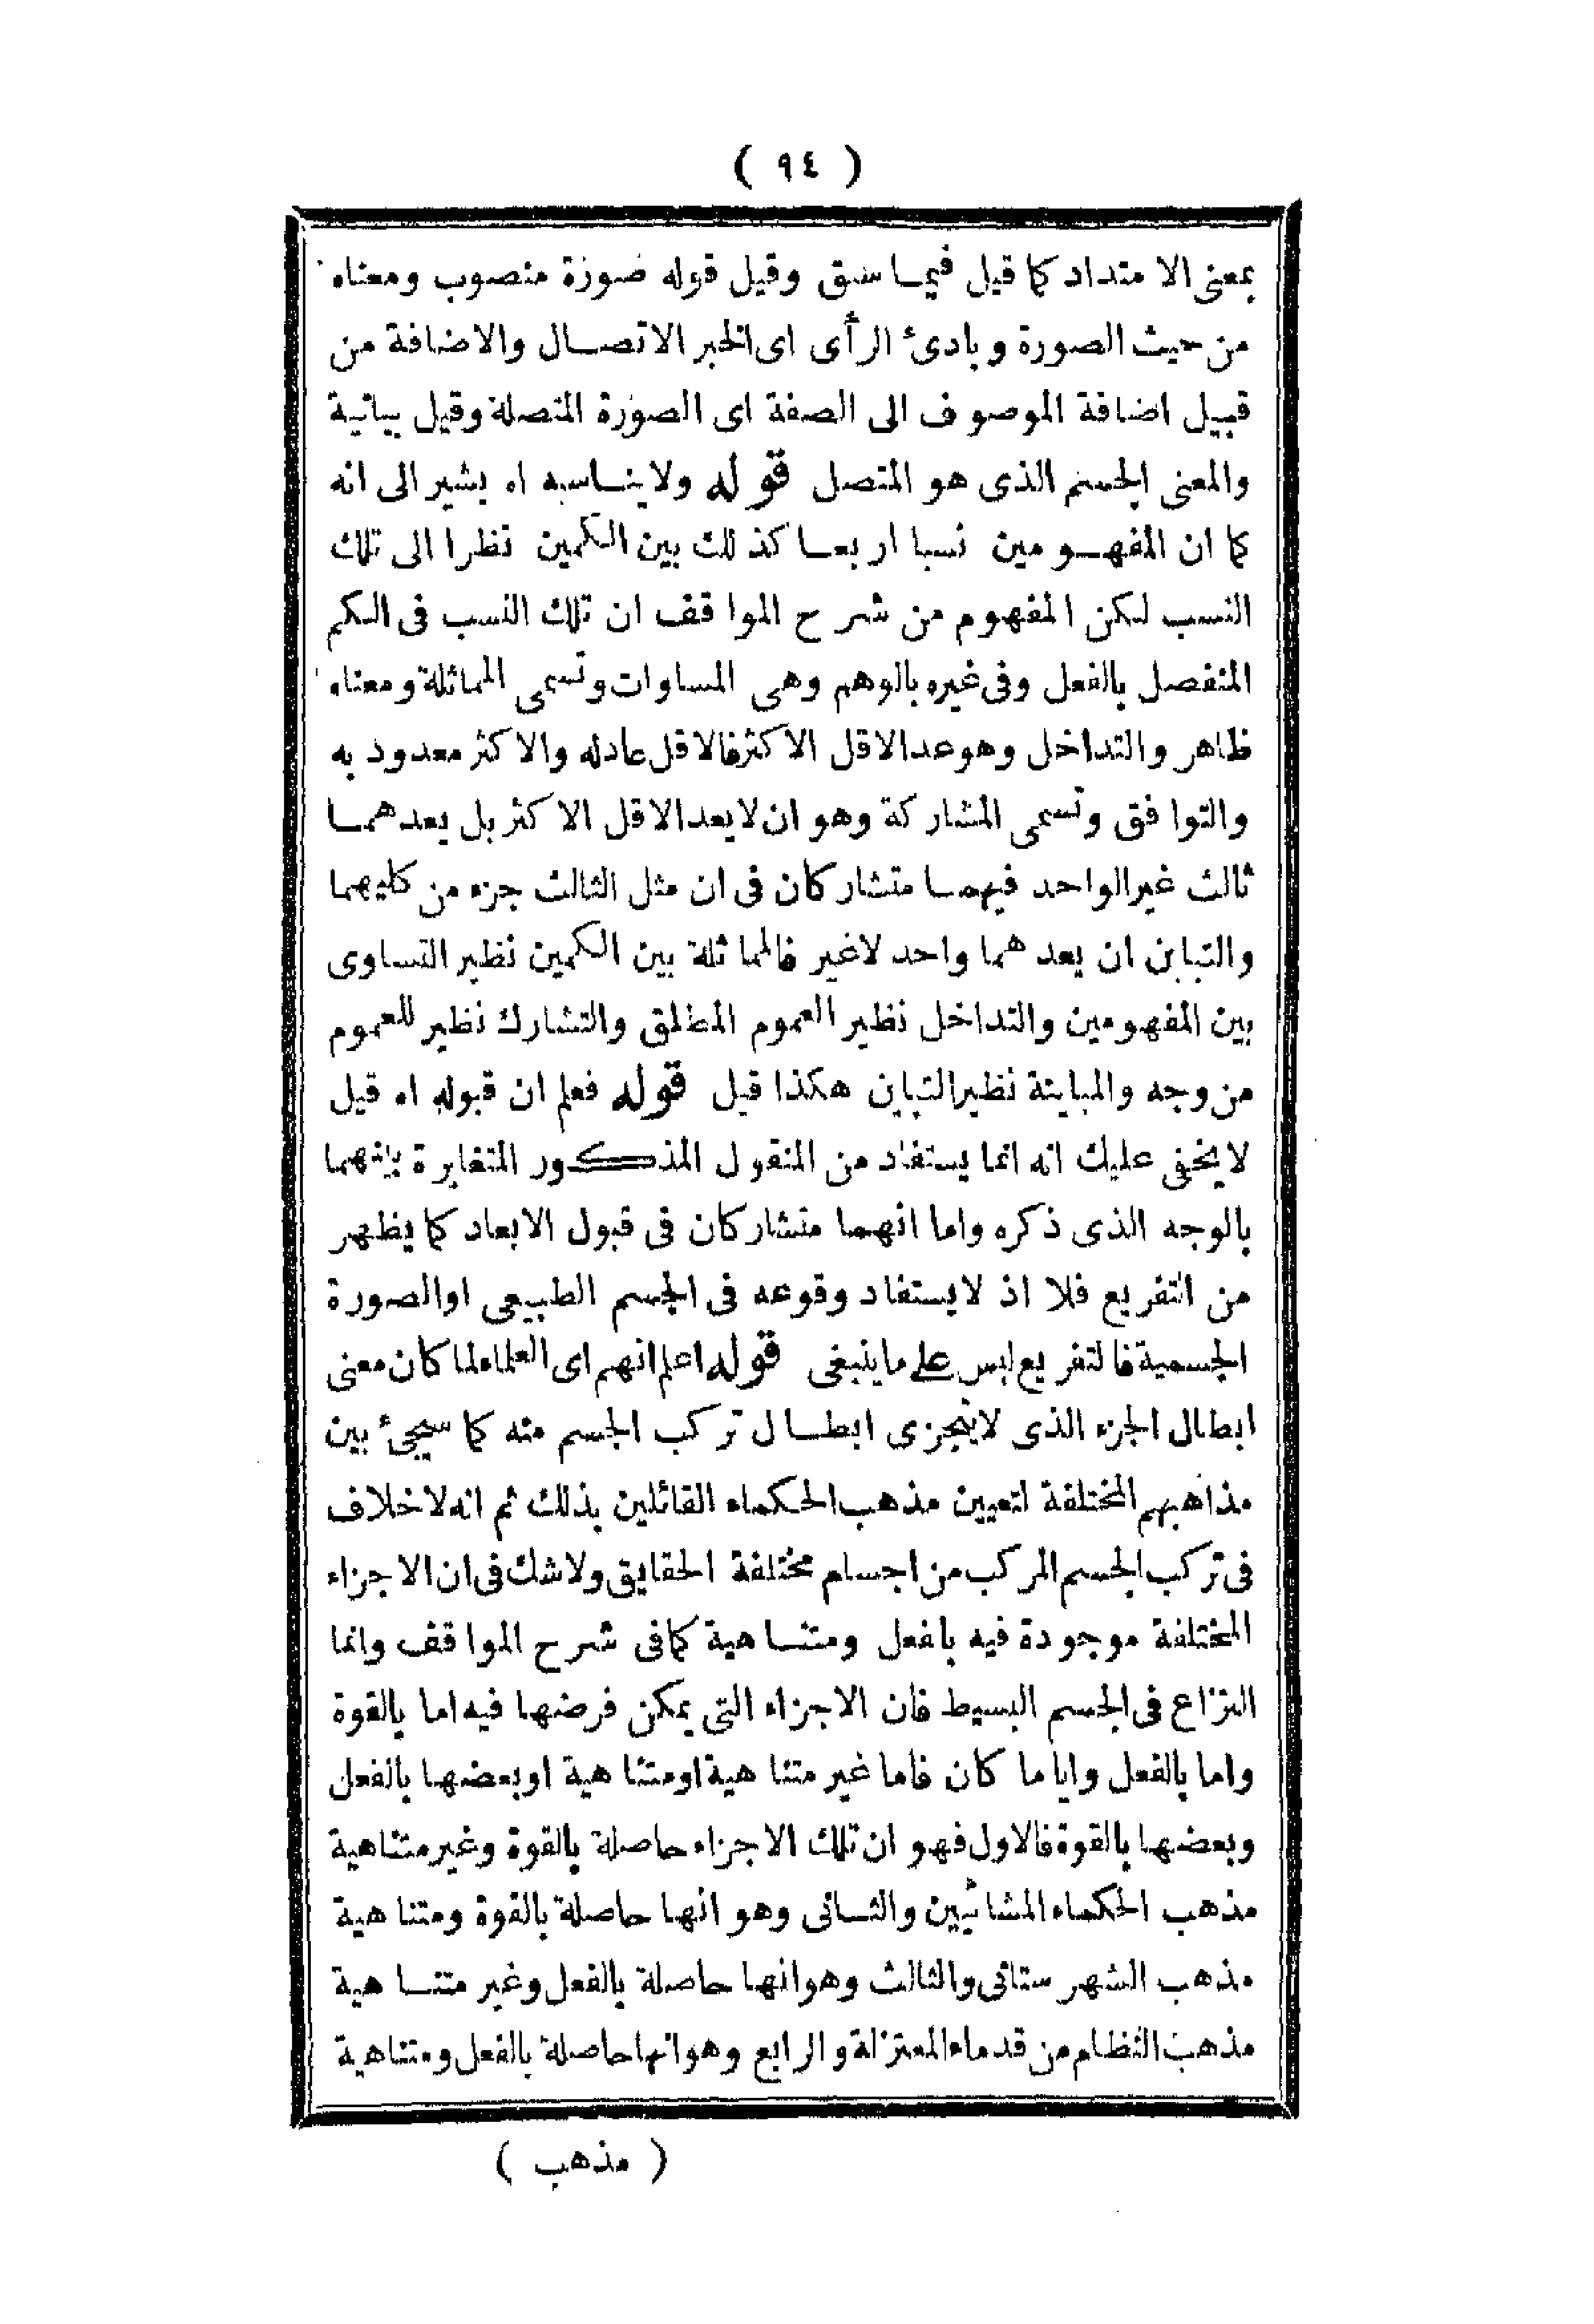 ( ٩٤ )
بمعنى الامتداد كما قيل فيما سبق وقيل قوله صورة منصوب ومعناه
من حيث الصورة وبادئ الرأى اى الخبر الاتصال والاضافة من
قبيل اضافة الموصوف الى الصفة اى الصورة المتصلة وقيل بيانية
والمعنى الجسم الذى هو المتصل قوله ولا يناسبه اه يشير الى انه
كما ان المفهومين نسبا اربعا كذلك بين الكمين نظرا الى تلك
النسب لكن المفهوم من شرح المواقف ان تلك النسب فى الكم
المنفصل بالفعل وفى غيره بالوهم وهى المساوات وتسمى المماثلة ومعناه
ظاهر والتداخل وهو عد الاقل الاكثر فالاقل عادله والاكثر معدود به
والتوافق وتسمى المشاركة وهو ان لا يعد الاقل الاكثر بل يعدهما
ثالث غير الواحد فيهما متشاركان فى ان مثل الثالث جزء من كليهما
والتباين ان يعدهما واحد لاغير فالمماثلة بين الكمين نظير التساوى
بين المفهومين والتداخل نظير العموم المطلق والتشارك نظير للعموم
من وجه والمباينة نظير التباين هكذا قيل قوله فعلم ان قبوله اه قيل
لا يخفى عليك انه انما يستفاد من المنقول المذكور المتغايرة بينهما
بالوجه الذى ذكره واما انهما متشاركان فى قبول الابعاد كما يظهر
من التفريع فلا اذ لا يستفاد وقوعه فى الجسم الطبيعى او الصورة
الجسمية فالتفريع ليس على ما ينبغى قوله اعلم انهم اى العلماء لما كان معنى
ابطال الجزء الذى لايتجزى ابطال تركب الجسم منه كما سيجئ بين
مذاهبهم المختلفة لتعيين مذهب الحكماء القائلين بذلك ثم انه لا خلاف
فى تركب الجسم المركب من اجسام مختلفة الحقايق ولا شك فى ان الاجزاء
المختلفة موجودة فيه بافعل ومتناهية كما فى شرح المواقف وانما
النزاع فى الجسم البسيط فان الاجزاء التى يمكن فرضها فيه اما بالقوة
واما بالفعل واياما كان فاما غير متناهية او متناهية او بعضها بالفعل
وبعضها بالقوة فالاول فهو ان تلك الاجزاء حاصلة بالقوة وغير متناهية
مذهب الحكماء المشائيين والثانى وهو انها حاصلة بالقوة ومتناهية
مذهب الشهرستانى والثالث وهو انها حاصلة بالفعل وغير متناهية
مذهب النظام من قدماء المعتزلة والرابع وهو انها حاصلة بالفعل ومتناهية
( مذهب )